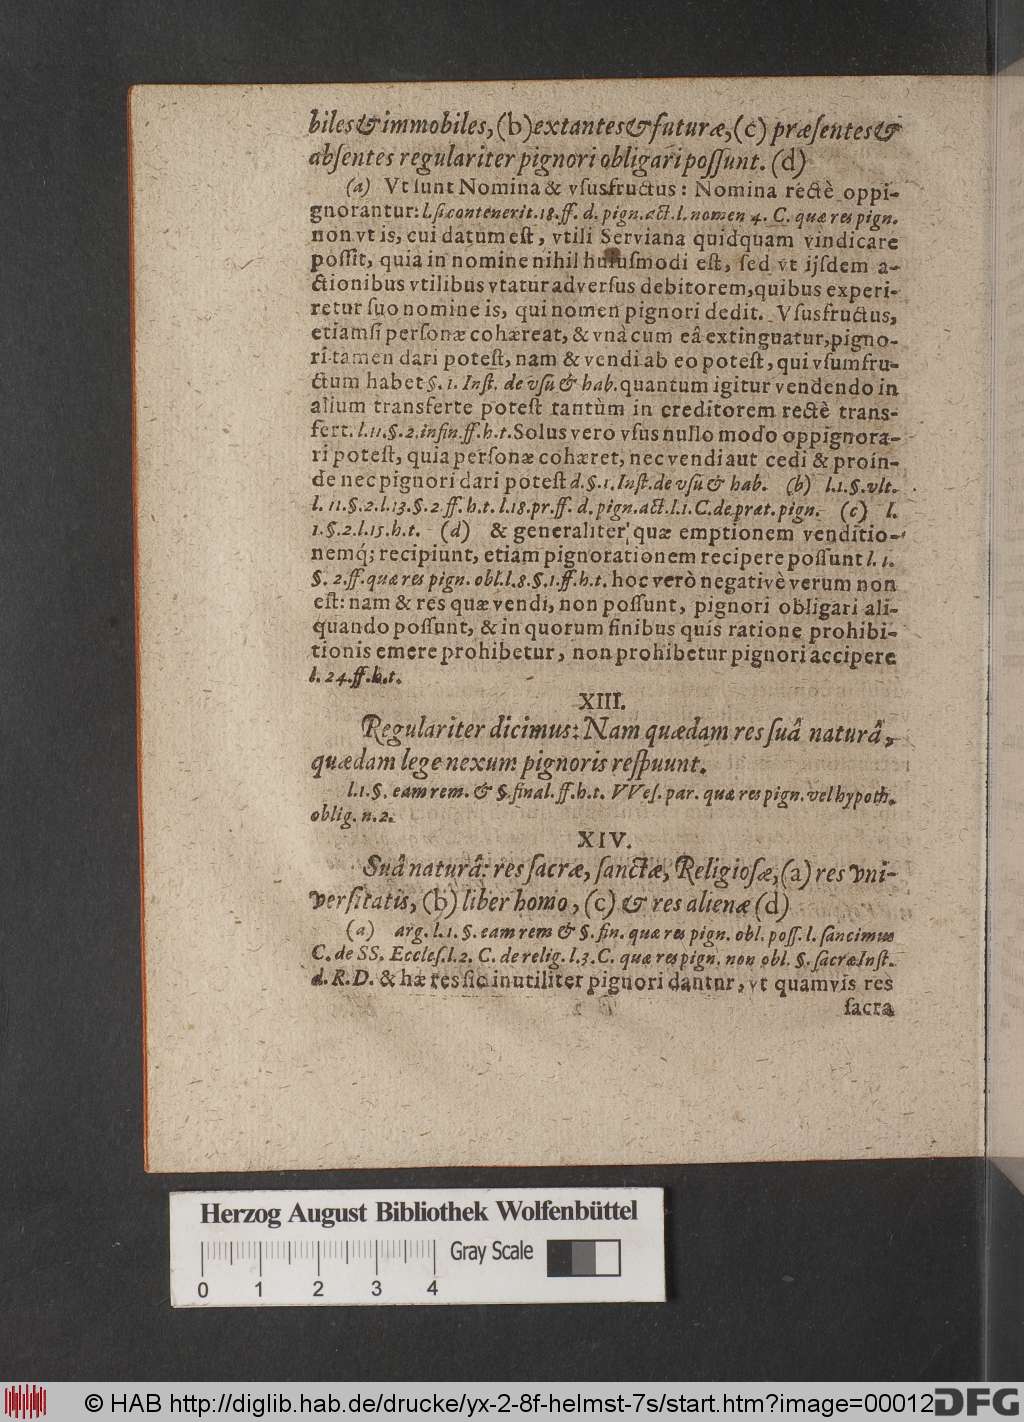 biles & immobiles, (b) extantes & futuræ, (c) præſentes &
abſentes regulariter pignori obligari poſſunt. (d)
(a) Vt ſunt Nomina & vſusfructus: Nomina rectè oppi-
gnorantur: l. ſi convenerit. 18. ff. d. pign. act. l. nomen 4. C. quæ res pign.
non vt is, cui datum eſt, vtili Serviana quidquam vindicare
poſſit, quia in nomine nihil huiuſmodi eſt, ſed vt ijſdem a-
ctionibus vtilibus vtatur adverſus debitorem, quibus experi-
retur ſuo nomine is, qui nomen pignori dedit. Vſusfructus,
etiamſi perſonæ cohæreat, & vnà cum eâ extinguatur, pigno-
ri tamen dari poteſt, nam & vendi ab eo poteſt, qui vſumfru-
ctum habet §. 1. Inſt. de vſu & hab. quantum igitur vendendo in
alium transferte poteſt tantùm in creditorem rectè trans-
fert. l. 11. §. 2. in fin. ff. h. t. Solus vero vſus nullo modo oppignora-
ri poteſt, quia perſonæ cohæret, nec vendi aut cedi & proin-
de nec pignori dari poteſt d. §. 1. Inſt. de vſu & hab. (b) l. 1. §. vlt.
l. 11. §. 2. l. 13. §. 2. ff. h. t. l. 18. pr. ff. d. pign. act. l. 1. C. de præt. pign. (c) l.
1. §. 2. l. 15. h. t. (d) & generaliter quæ emptionem venditio-
nemq; recipiunt, etiam pignorationem recipere poſſunt l. 1.
§. 2. ff. quæ res pign. obl. l. 8. §. 1. ff. h. t. hoc verò negativè verum non
eſt: nam & res quæ vendi, non poſſunt, pignori obligari ali-
quando poſſunt, & in quorum finibus quis ratione prohibi-
tionis emere prohibetur, non prohibetur pignori accipere
l. 24. ff. h. t.
XIII.
Regulariter dicimus: Nam quædam res ſuâ naturâ,
quædam lege nexum pignoris reſpuunt.
l. 1. §. eam rem. & §. final. ff. h. t. VVeſ. par. quæ res pign. vel hypoth.
oblig. n. 2.
XIV.
Suâ naturâ: res ſacræ, ſanctæ, Religioſæ, (a) res vni-
verſitatis, (b) liber homo, (c) & res alienæ (d)
(a) arg. l. 1. §. eam rem & §. fin. quæ res pign. obl. poſſ. l. ſancimus
C. de SS. Eccleſ. l. 2. C. de relig. l. 3. C. quæ res pign. non obl. §. ſacræ Inſt.
d. R. D. & hæ res ſic inutiliter pignori dantur, vt quamvis res
ſacra
Herzog August Bibliothek Wolfenbüttel
Gray Scale
0 1 2 3 4
© HAB http://diglib.hab.de/drucke/yx-2-8f-helmst-7s/start.htm?image=00012
DFG